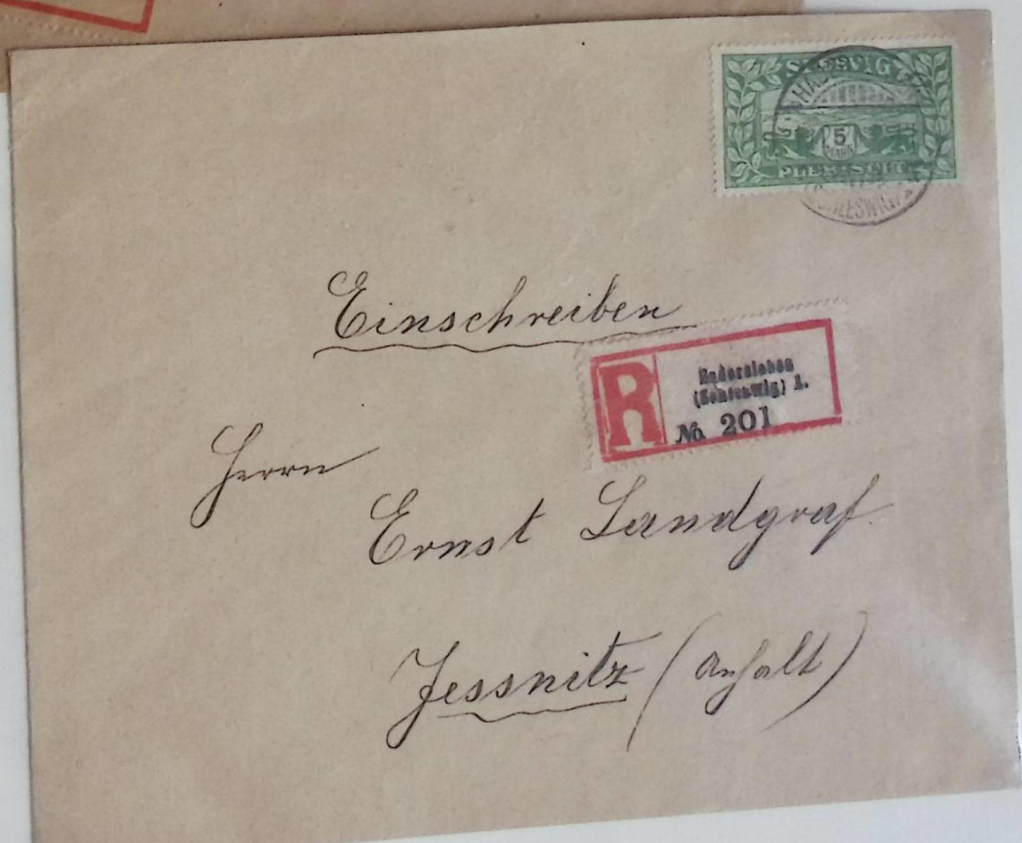 5
MARK
PLEBISCIT
Einschreiben
R
Hadersleben
(Schleswig) 1.
№ 201
Herrn
Ernst Landgraf
Jessnitz (Anhalt)